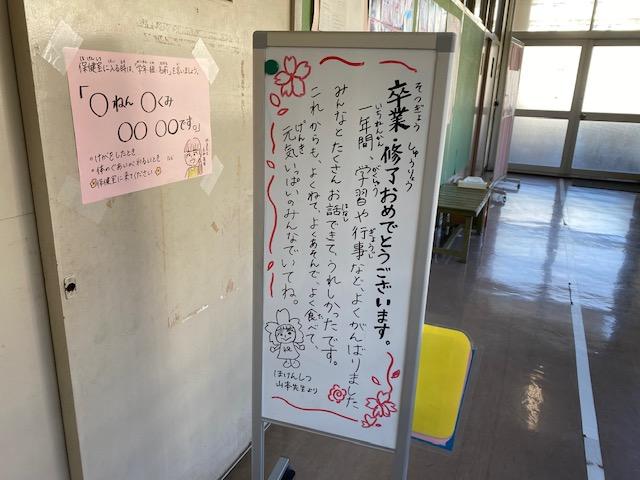 保健室に入る時は、「学年 組 名前」を言いましょう。
ほけんしつ
「〇ねん 〇くみ
〇〇 〇〇です。」
・けがをしたとき
・体のぐあいがわるいとき
保健室に来てください
そつぎょう しゅうりょう
卒業・修了おめでとうございます。
いちねんかん がくしゅう ぎょうじ
一年間、学習や行事など、よくがんばりました
はなし
みんなとたくさんお話できて、うれしかったです。
た
これからも、よくねて、よくあそんで、よく食べて、
げんき
元気いっぱいのみんなでいてね。
ほけんしつ
山本先生より